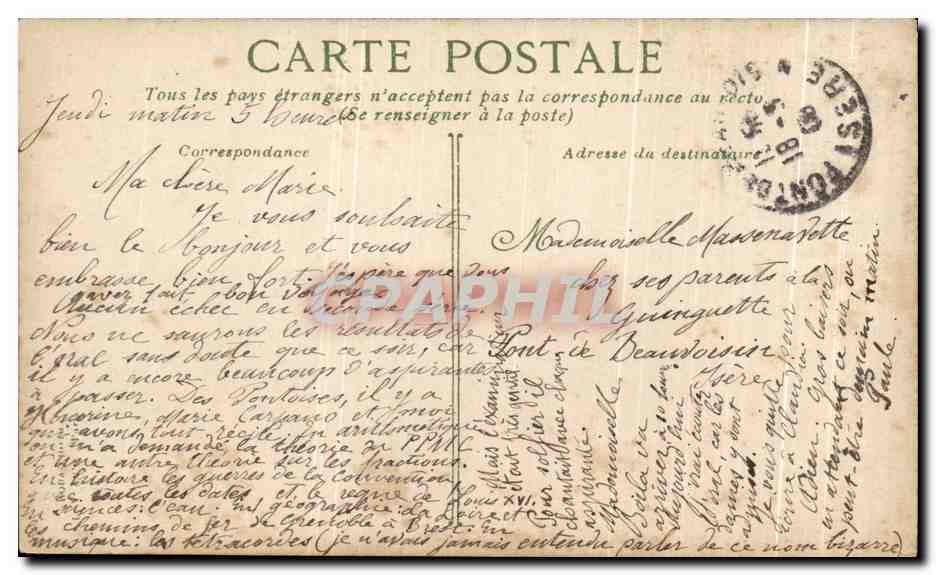 CARTE POSTALE
Tous les pays étrangers n'acceptent pas la correspondance au recto
(Se renseigner à la poste)
Jeudi matin 5 heures
Correspondance
Ma chère Marie.
Je vous souhaite
bien le bonjour et vous
embrasse bien fort. J'espère que vous
avez fait bon voyage.
Aucun échec en
Nous ne saurons les résultats de
l'oral sans doute que ce soir, car
il y a encore beaucoup d'aspirantes
à passer. Des Pontoises, il y a
Marie et moi
qui avons tout récité. En arithmétique
on m'a demandé la théorie du PPMC
et une autre théorie sur les fractions.
En histoire les guerres de la Convention
toutes les dates et le règne de Louis XVI,
en sciences: l'eau. en géographie: la Loire et
les chemins de fer de Grenoble à Brest. En
musique: les tétracordes (je n'avais jamais entendu parler de ce nom bizarre)
Mais l'examinateur
était fort gentil
Pour solfier il
chantait avec chaque
aspirante.
Adresse du destinataire
Mademoiselle
chez ses parents à la
Guinguette
Pont de Beauvoisin
Isère
Mademoiselle
va
arriver à 10 heures
aujourd'hui
l'oral car les
dames y sont
admises.
Je vous quitte pour
écrire à
Adieu gros baisers
en attendant ce soir, ou
peut-être demain matin
Paule.
PONT DE BEAUVOISIN
ISERE
18
09
CARAPHIL